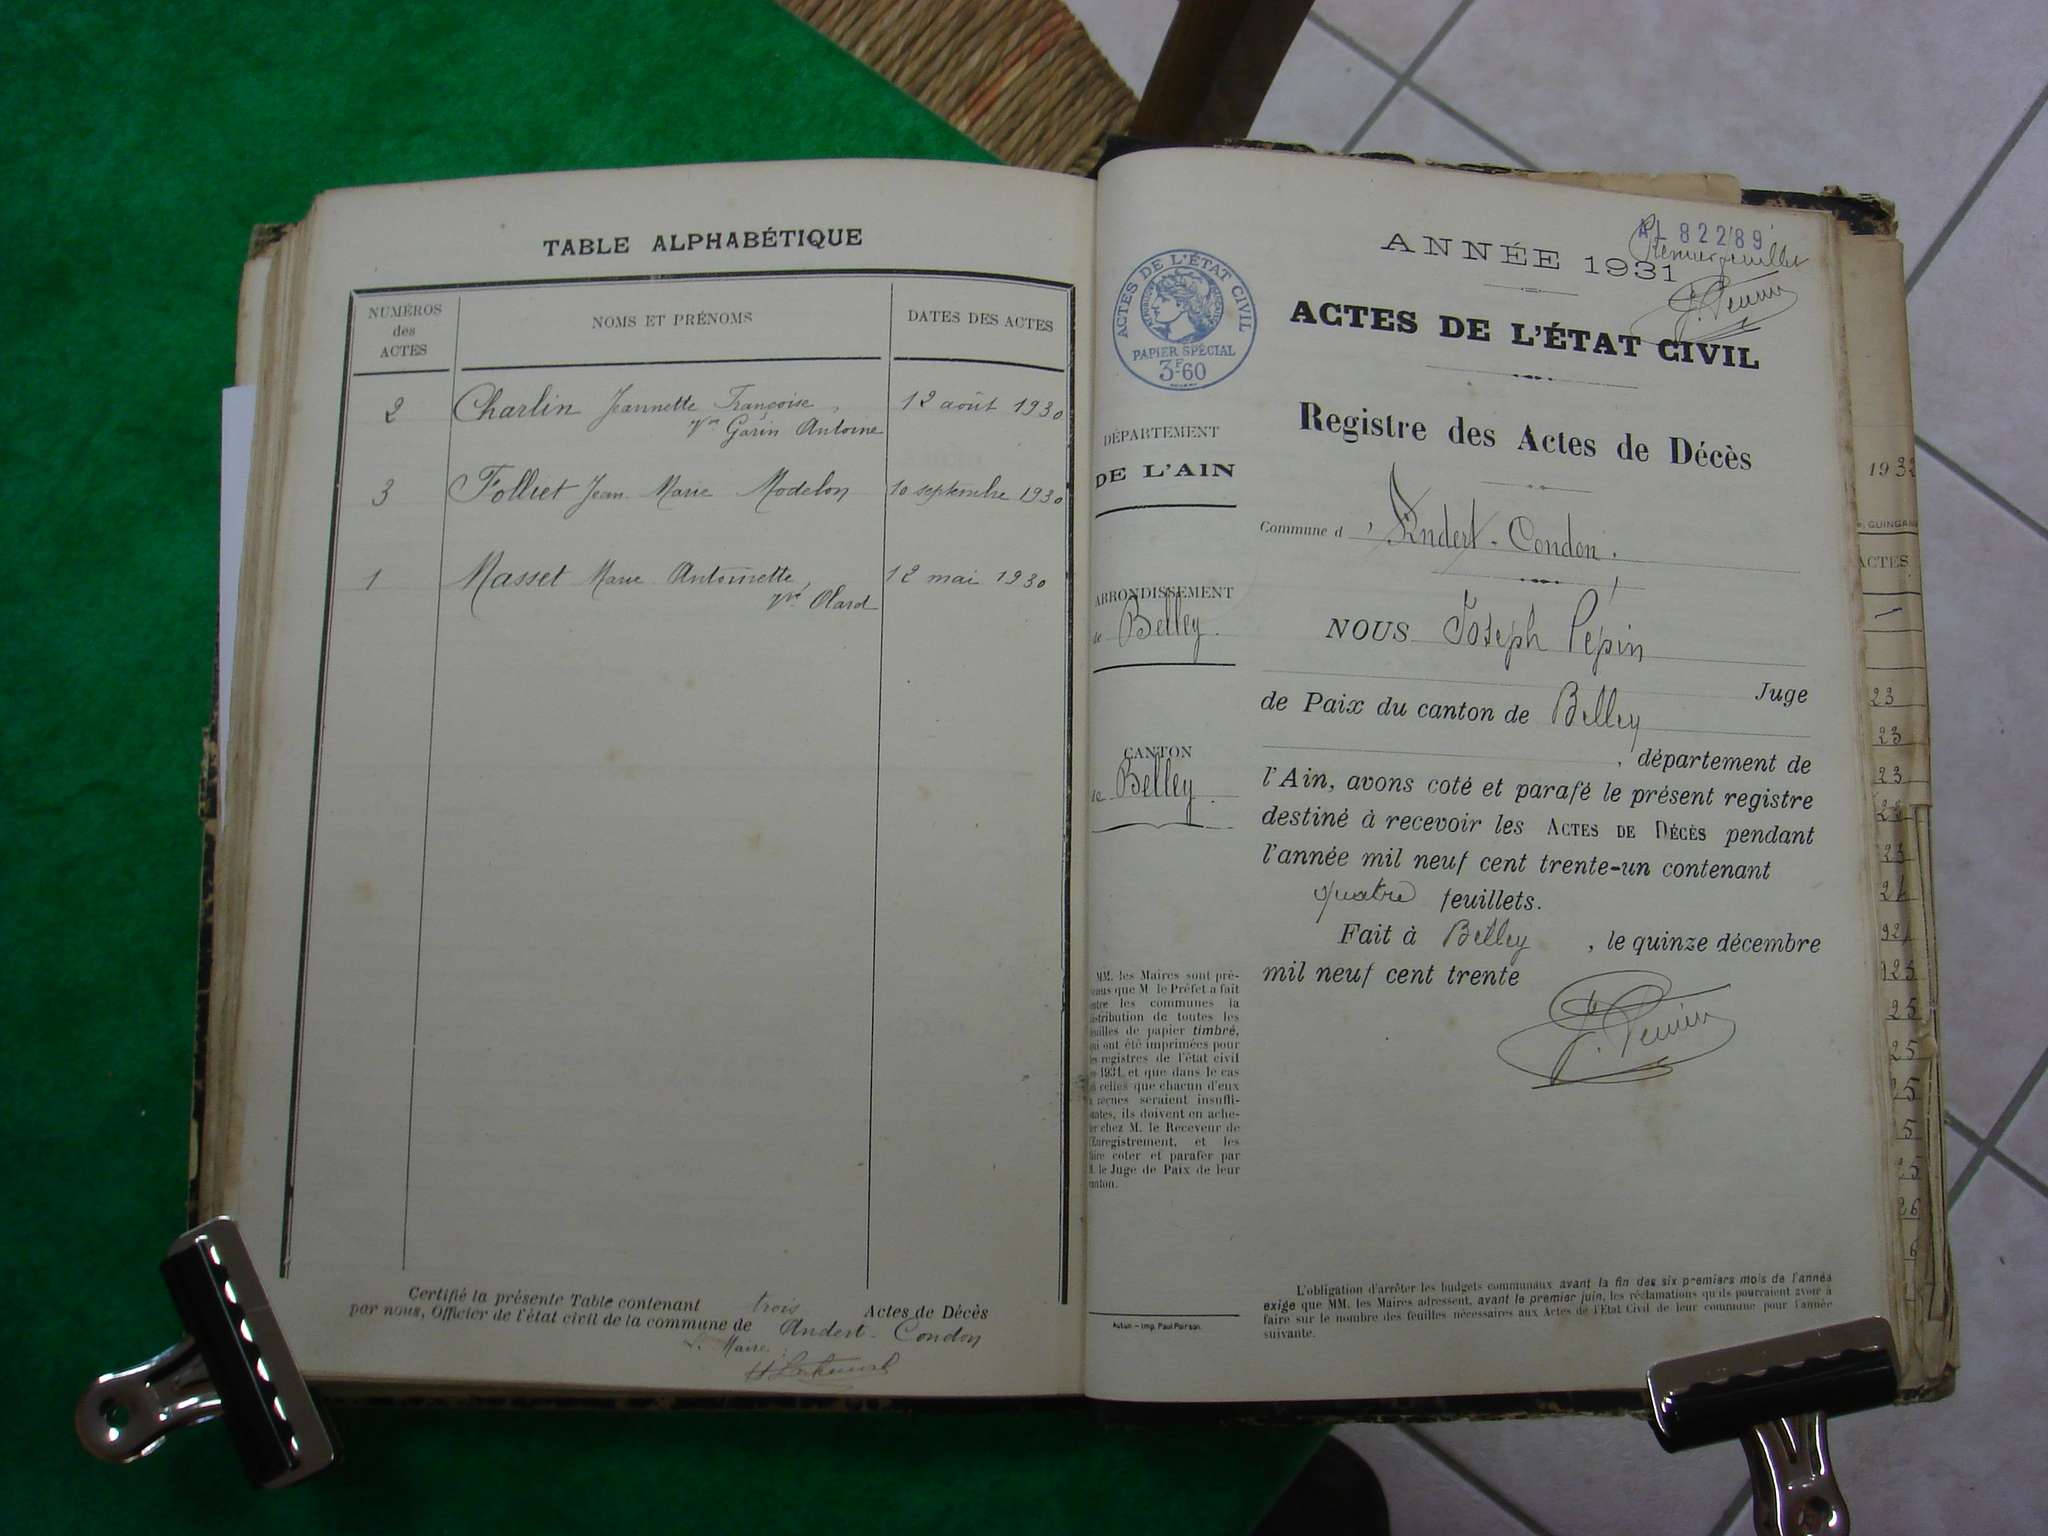 TABLE ALPHABÉTIQUE
NUMÉROS
des
ACTES
NOMS ET PRÉNOMS
DATES DES ACTES
2 Charlin Jeannette Françoise, 12 août 1930
Vve Garin Antoine
3 Folliet Jean Marie Modelon 10 septembre 1930
1 Masset Marie Antoinette, 12 mai 1930
Vve Olard
Certifié la présente Table contenant trois Actes de Décès
par nous, Officier de l'état civil de la commune de Andert-Condon
Le Maire
AL 82289
Premier feuillet
ANNÉE 1931
ACTES DE L'ÉTAT CIVIL
ACTES DE L'ÉTAT CIVIL
PAPIER SPÉCIAL
3F60
Registre des Actes de Décès
DÉPARTEMENT
DE L'AIN
Commune d'Andert-Condon.
ARRONDISSEMENT
de Belley.
NOUS Joseph Pépin
Juge
de Paix du canton de Belley
CANTON
de Belley.
, département de
l'Ain, avons coté et parafé le présent registre
destiné à recevoir les ACTES DE DÉCÈS pendant
l'année mil neuf cent trente-un contenant
quatre feuillets.
Fait à Belley, le quinze décembre
mil neuf cent trente
MM. les Maires sont pré-
que M. le Préfet a fait
les communes la
de toutes les
de papier timbré,
qui ont été imprimées pour
registres de l'état civil
1931, et que dans le cas
celles que chacun d'eux
reçues seraient insuffi-
ils doivent en ache-
chez M. le Receveur de
l'Enregistrement, et les
faire coter et parafer par
M. le Juge de Paix de leur
canton.
Autun - Imp. Paul Poirson
L'obligation d'arrêter les budgets communaux avant la fin des six premiers mois de l'année
exige que MM. les Maires adressent, avant le premier juin, les réclamations qu'ils pourraient avoir à
faire sur le nombre des feuilles nécessaires aux Actes de l'Etat Civil de leur commune pour l'année
suivante.
1932
GUINGAN
ACTES
23
23
23
23
25
25
25
5
25
26
6